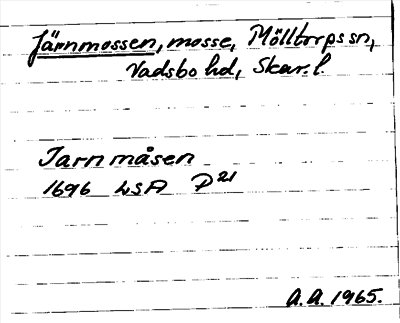 Järnmossen, mosse, Mölltorps sn,
Vadsbo hd, Skar. l.
Jarnmåsen
1696 LSA P21
A.A. 1965.